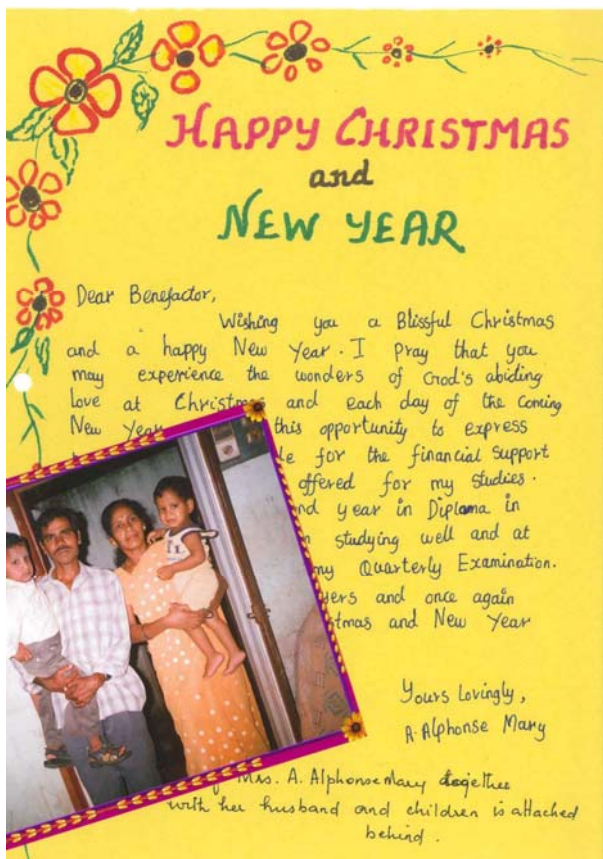 HAPPY CHRISTMAS
and
NEW YEAR
Dear Benefactor,
Wishing you a Blissful Christmas
and a happy New Year. I pray that you
may experience the wonders of God's abiding
love at Christmas and each day of the coming
New Year this opportunity to express
for the financial support
offered for my studies.
year in Diploma in
studying well and at
my Quarterly Examination.
and once again
and New Year
Yours Lovingly,
A. Alphonse Mary
Mrs. A. Alphonse Mary together
with her husband and children is attached
behind.